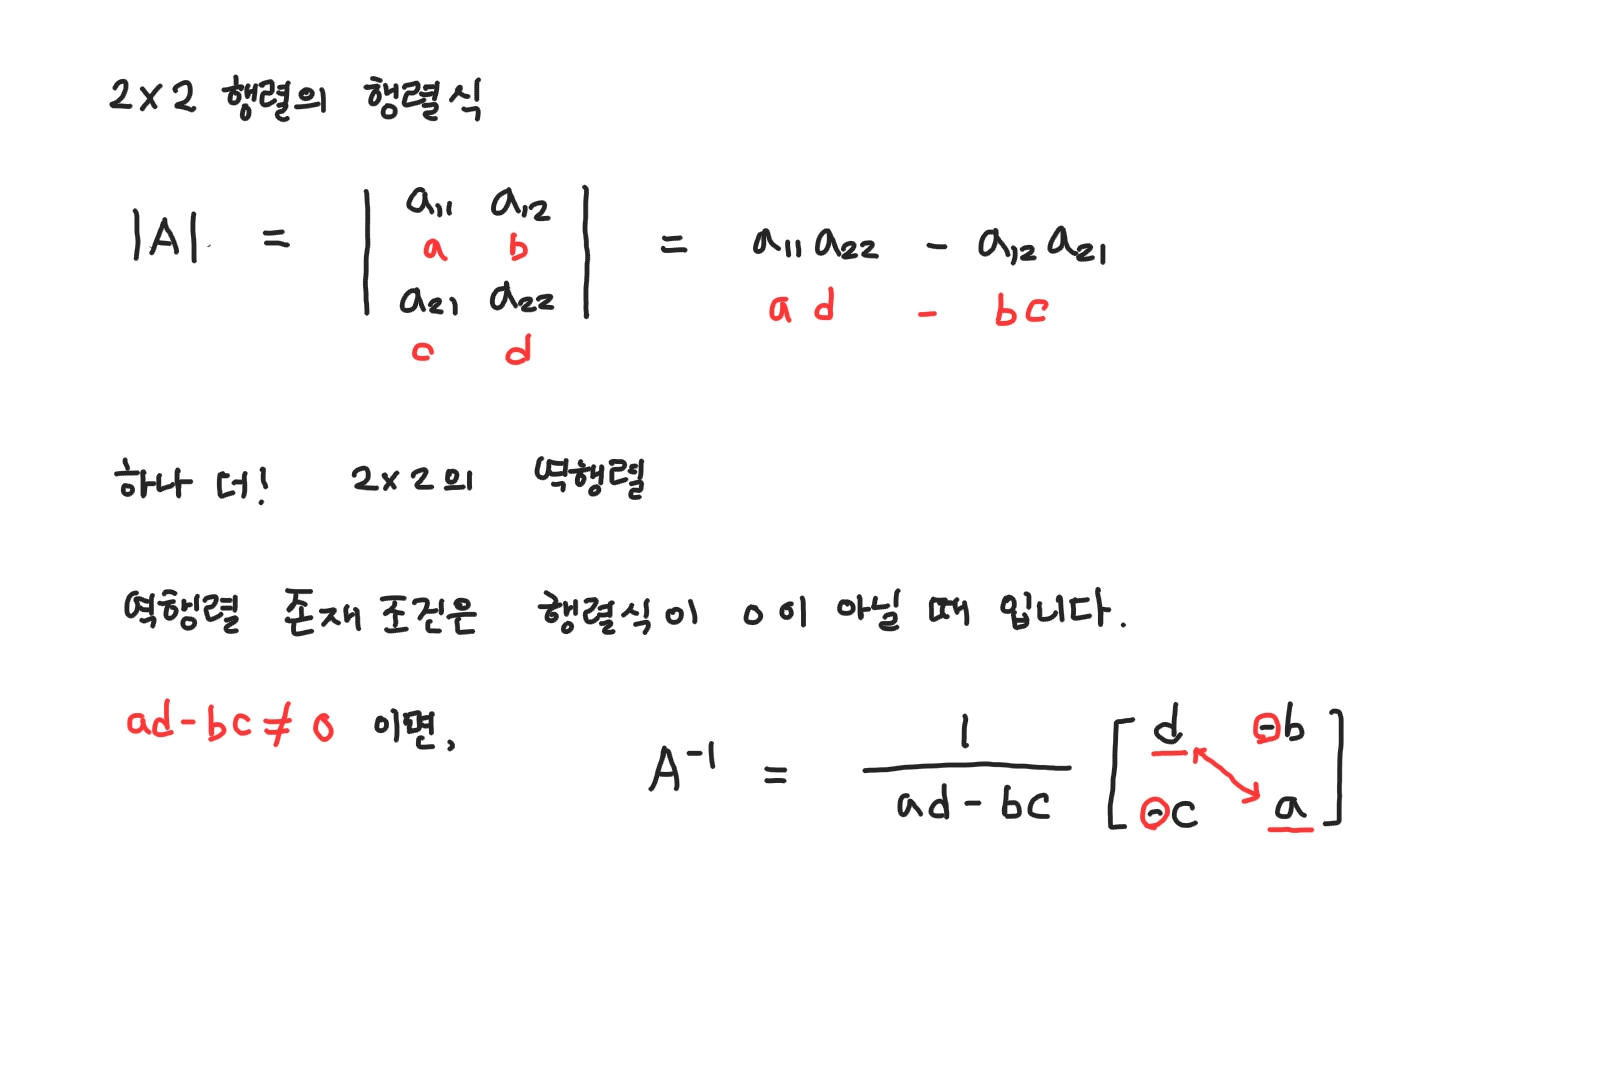 2×2 행렬의 행렬식
|A| = | a₁₁ a₁₂ | = a₁₁a₂₂ - a₁₂a₂₁
a b
a₂₁ a₂₂
ad - bc
c d
하나 더! 2×2의 역행렬
역행렬 존재 조건은 행렬식이 0이 아닐 때 입니다.
ad-bc≠0 이면,
A⁻¹ = 1/(ad-bc) [d -b
-c a]